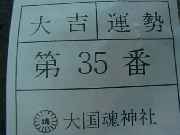 大吉 運勢
第35番
大国魂神社